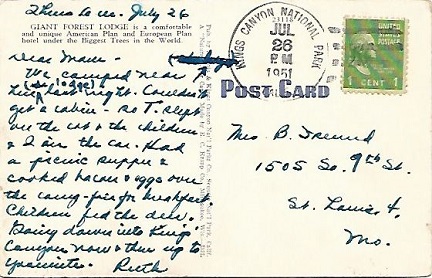 Thurs. July 26
GIANT FOREST LODGE is a comfortable
and unique American Plan and European Plan
hotel under the Biggest Trees in the World.
Dear Mam –
We camped near
here last night. Couldn't
get a cabin – so T. slept
on the cot & the children
& I in the car. Had
a picnic supper &
cooked bacon & eggs over
the camp-fire for breakfast.
Children fed the deer.
Going down into Kings
Canyon now & then up to
Yosemite. Ruth
KINGS CANYON NATIONAL PARK
JUL
26
PM
1951
POST CARD
UNITED STATES
POSTAGE
1 CENT 1
Mrs B. Freund
1505 So. 9th St.
St. Louis 4,
Mo.